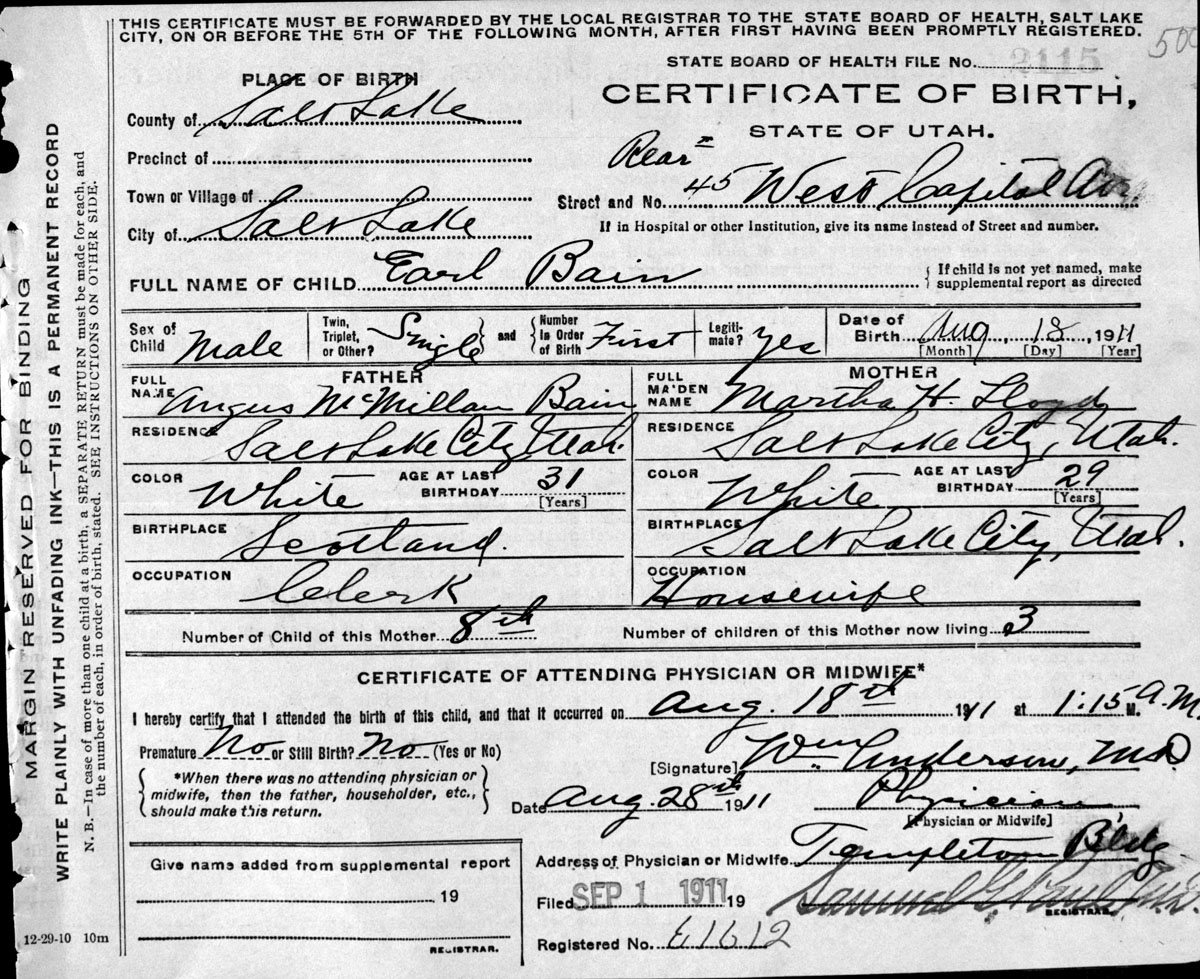 THIS CERTIFICATE MUST BE FORWARDED BY THE LOCAL REGISTRAR TO THE STATE BOARD OF HEALTH, SALT LAKE
CITY, ON OR BEFORE THE 5TH OF THE FOLLOWING MONTH, AFTER FIRST HAVING BEEN PROMPTLY REGISTERED.
STATE BOARD OF HEALTH FILE No. 2115
PLACE OF BIRTH
CERTIFICATE OF BIRTH,
STATE OF UTAH.
County of Salt Lake
Precinct of
Town or Village of
City of Salt Lake
Rear
Street and No. 45 West Capitol Ave
If in Hospital or other Institution, give its name instead of Street and number.
FULL NAME OF CHILD Earl Bain
If child is not yet named, make
supplemental report as directed
Sex of Child Male
Twin, Triplet, or Other? Single and Number in Order of Birth First
Legiti-mate? Yes
Date of Birth Aug, 18, 1911
[Month] [Day] [Year]
FATHER
FULL NAME Angus McMillan Bain
RESIDENCE Salt Lake City, Utah.
COLOR White
AGE AT LAST BIRTHDAY 31
[Years]
BIRTHPLACE Scotland.
OCCUPATION Clerk
MOTHER
FULL MAIDEN NAME Martha H. Lloyd
RESIDENCE Salt Lake City, Utah.
COLOR White
AGE AT LAST BIRTHDAY 29
[Years]
BIRTHPLACE Salt Lake City, Utah.
OCCUPATION Housewife
Number of Child of this Mother 8th
Number of children of this Mother now living 3
CERTIFICATE OF ATTENDING PHYSICIAN OR MIDWIFE*
I hereby certify that I attended the birth of this child, and that it occurred on Aug. 18th 1911 at 1:15 A.M. M.
Premature No or Still Birth? No (Yes or No)
*When there was no attending physician or
midwife, then the father, householder, etc.,
should make this return.
[Signature] Wm Anderson, M.D
Date Aug. 28th 1911
Physician
[Physician or Midwife]
Address of Physician or Midwife Templeton Bldg
Filed SEP 1 1911 19
Samuel G. Paul M.D.
REGISTRAR.
Registered No.
Give name added from supplemental report
19
REGISTRAR.
12-29-10 10m
MARGIN RESERVED FOR BINDING
WRITE PLAINLY WITH UNFADING INK—THIS IS A PERMANENT RECORD
N. B.—In case of more than one child at a birth, a SEPARATE RETURN must be made for each, and
the number of each, in order of birth, stated. SEE INSTRUCTIONS ON OTHER SIDE.